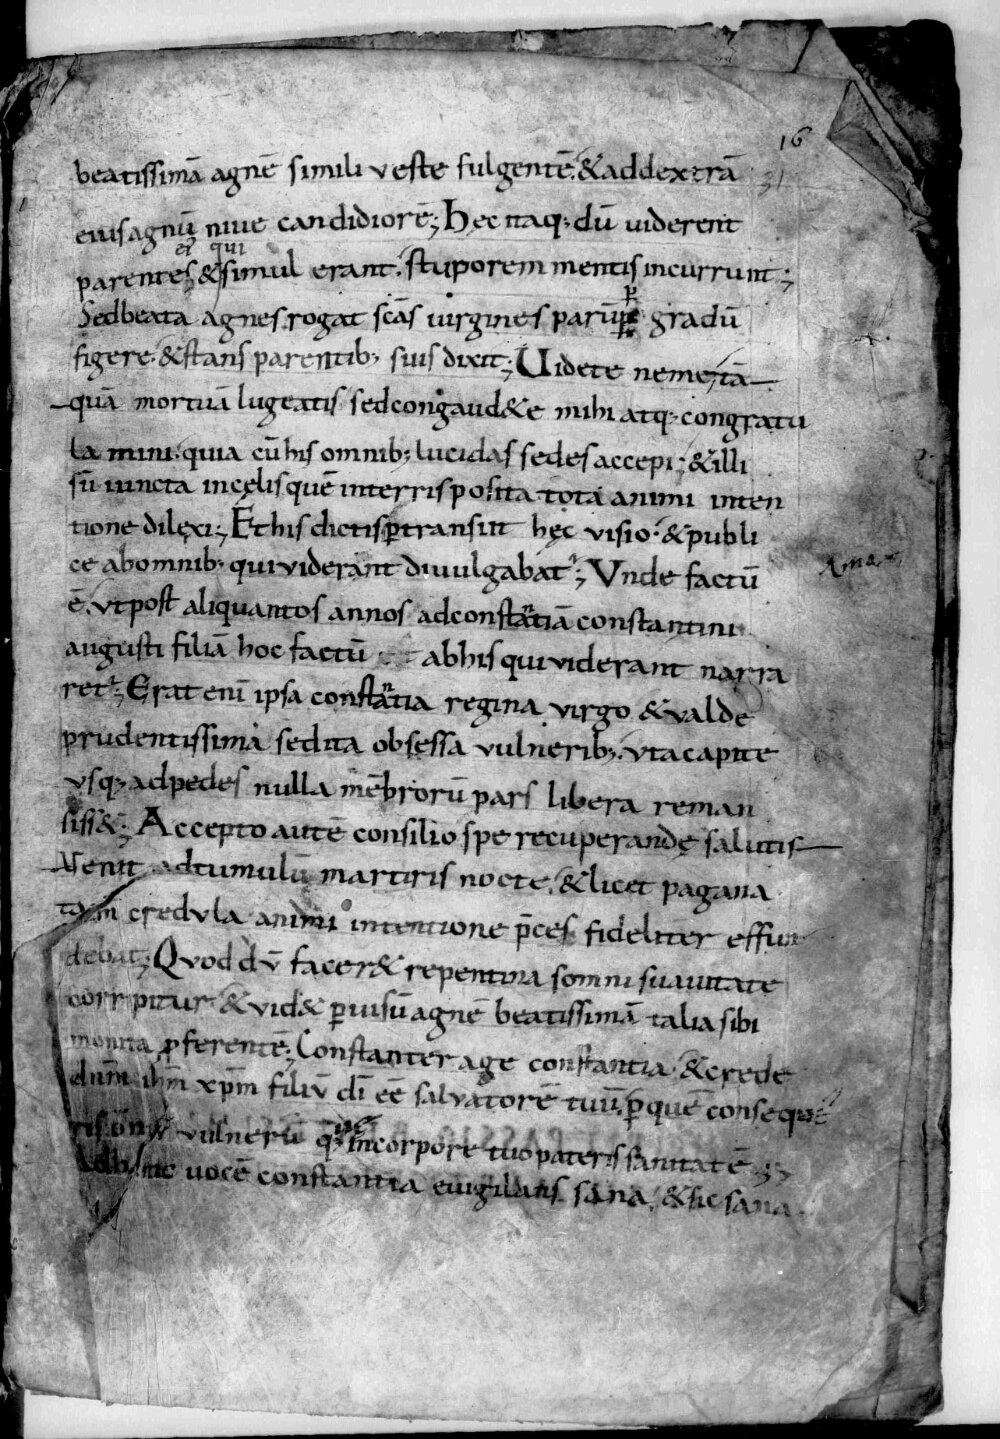 16
31
beatissimā agnē simili veste fulgentē. & addextrā
eius agnū niue candidiorē; Hęc itaq; dū viderent
ei qui
parentes & simul erant. stuporem mentis incurrunt;
Sed beata agnes rogat scās uirgines parūper gradū
figere. & stans parentib; suis dixit; Uidete ne me tā
quā mortuā lugeatis sed congaud&e mihi atq; congratu
lamini. quia cū his omnib; lucidas sedes accepi; & illi
sū iuncta in cęlis quē in terris posita tota animi inten
tione dilexi; Et his dictis ptransiit hęc visio. & publi
ce ab omnib; qui viderant diuulgabat̄; Vnde factū
ē. vt post aliquantos annos ad constantiā constantini
augusti filiā hoc factū ab his qui viderant narra
ret̄; Erat eni ipsa constantia regina virgo & valde
prudentissima sed ita obsessa vulnerib; vt a capite
vsq; ad pedes nulla mēbrorū pars libera reman
siss&; Accepto autē consilio spe recuperandę salutis
venit ad tumulū martiris nocte. & licet pagana
tam credvla animi intentione p̄ces fideliter effun
debat; Qvod dv̄ facer& repentina somni suauitate
corripitur. & vid& p uisū agnē beatissimā talia sibi
monita pferentē; Constanter age constantia. & crede
dn̄m ihm xpm filiv̄ dī eē salvatorē tuū. p quē conseque
ris vulnerū q; in corpore tuo pateris sanitatē;
Ad hanc uocē constantia euigilans sana. & sic sana